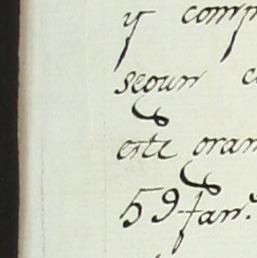 y comp
segun c
este gran
59 fan.